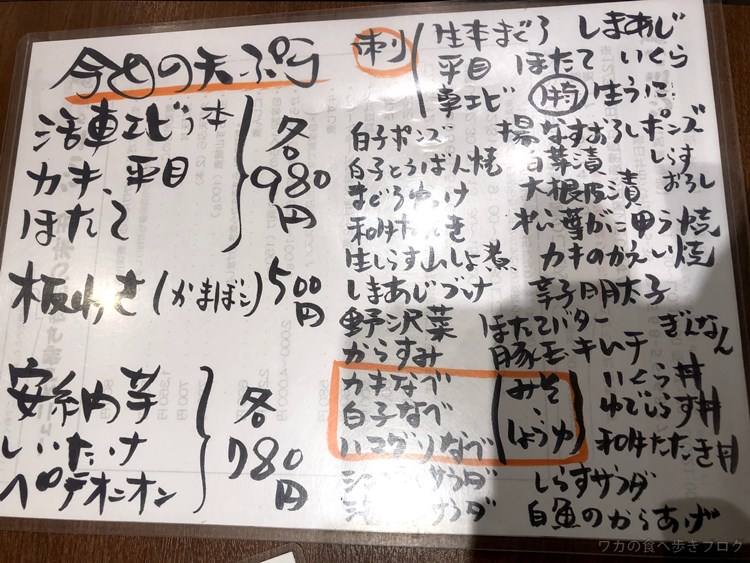 今日の天ぷら
活車エビ2本
カキ、平目
ほたて
各980円
板わさ(かまぼこ)500円
安納芋
しいたけ
ペコロスオニオン
各780円
刺
生本まぐろ しまあじ
平目 ほたて いくら
車エビ 生うに
白子ポンズ 揚なすおろしポンズ
白子とうばん焼 白菜漬 しらすおろし
まぐろゆっけ 大根皮漬
和牛たたき 松葉がに甲ら焼
生しらす山しょ煮 カキのかんい焼
しまあじづけ 辛子明太子
野沢菜 ほたてバター ぎんなん
からすみ 豚モキムチ
カキなべ
白子なべ
ハマグリなべ
(みそ、しょうゆ)
いくら丼
ゆでしらす丼
和牛たたき丼
サラダ しらすサラダ
サラダ 白魚のからあげ
ワカの食べ歩きブログ